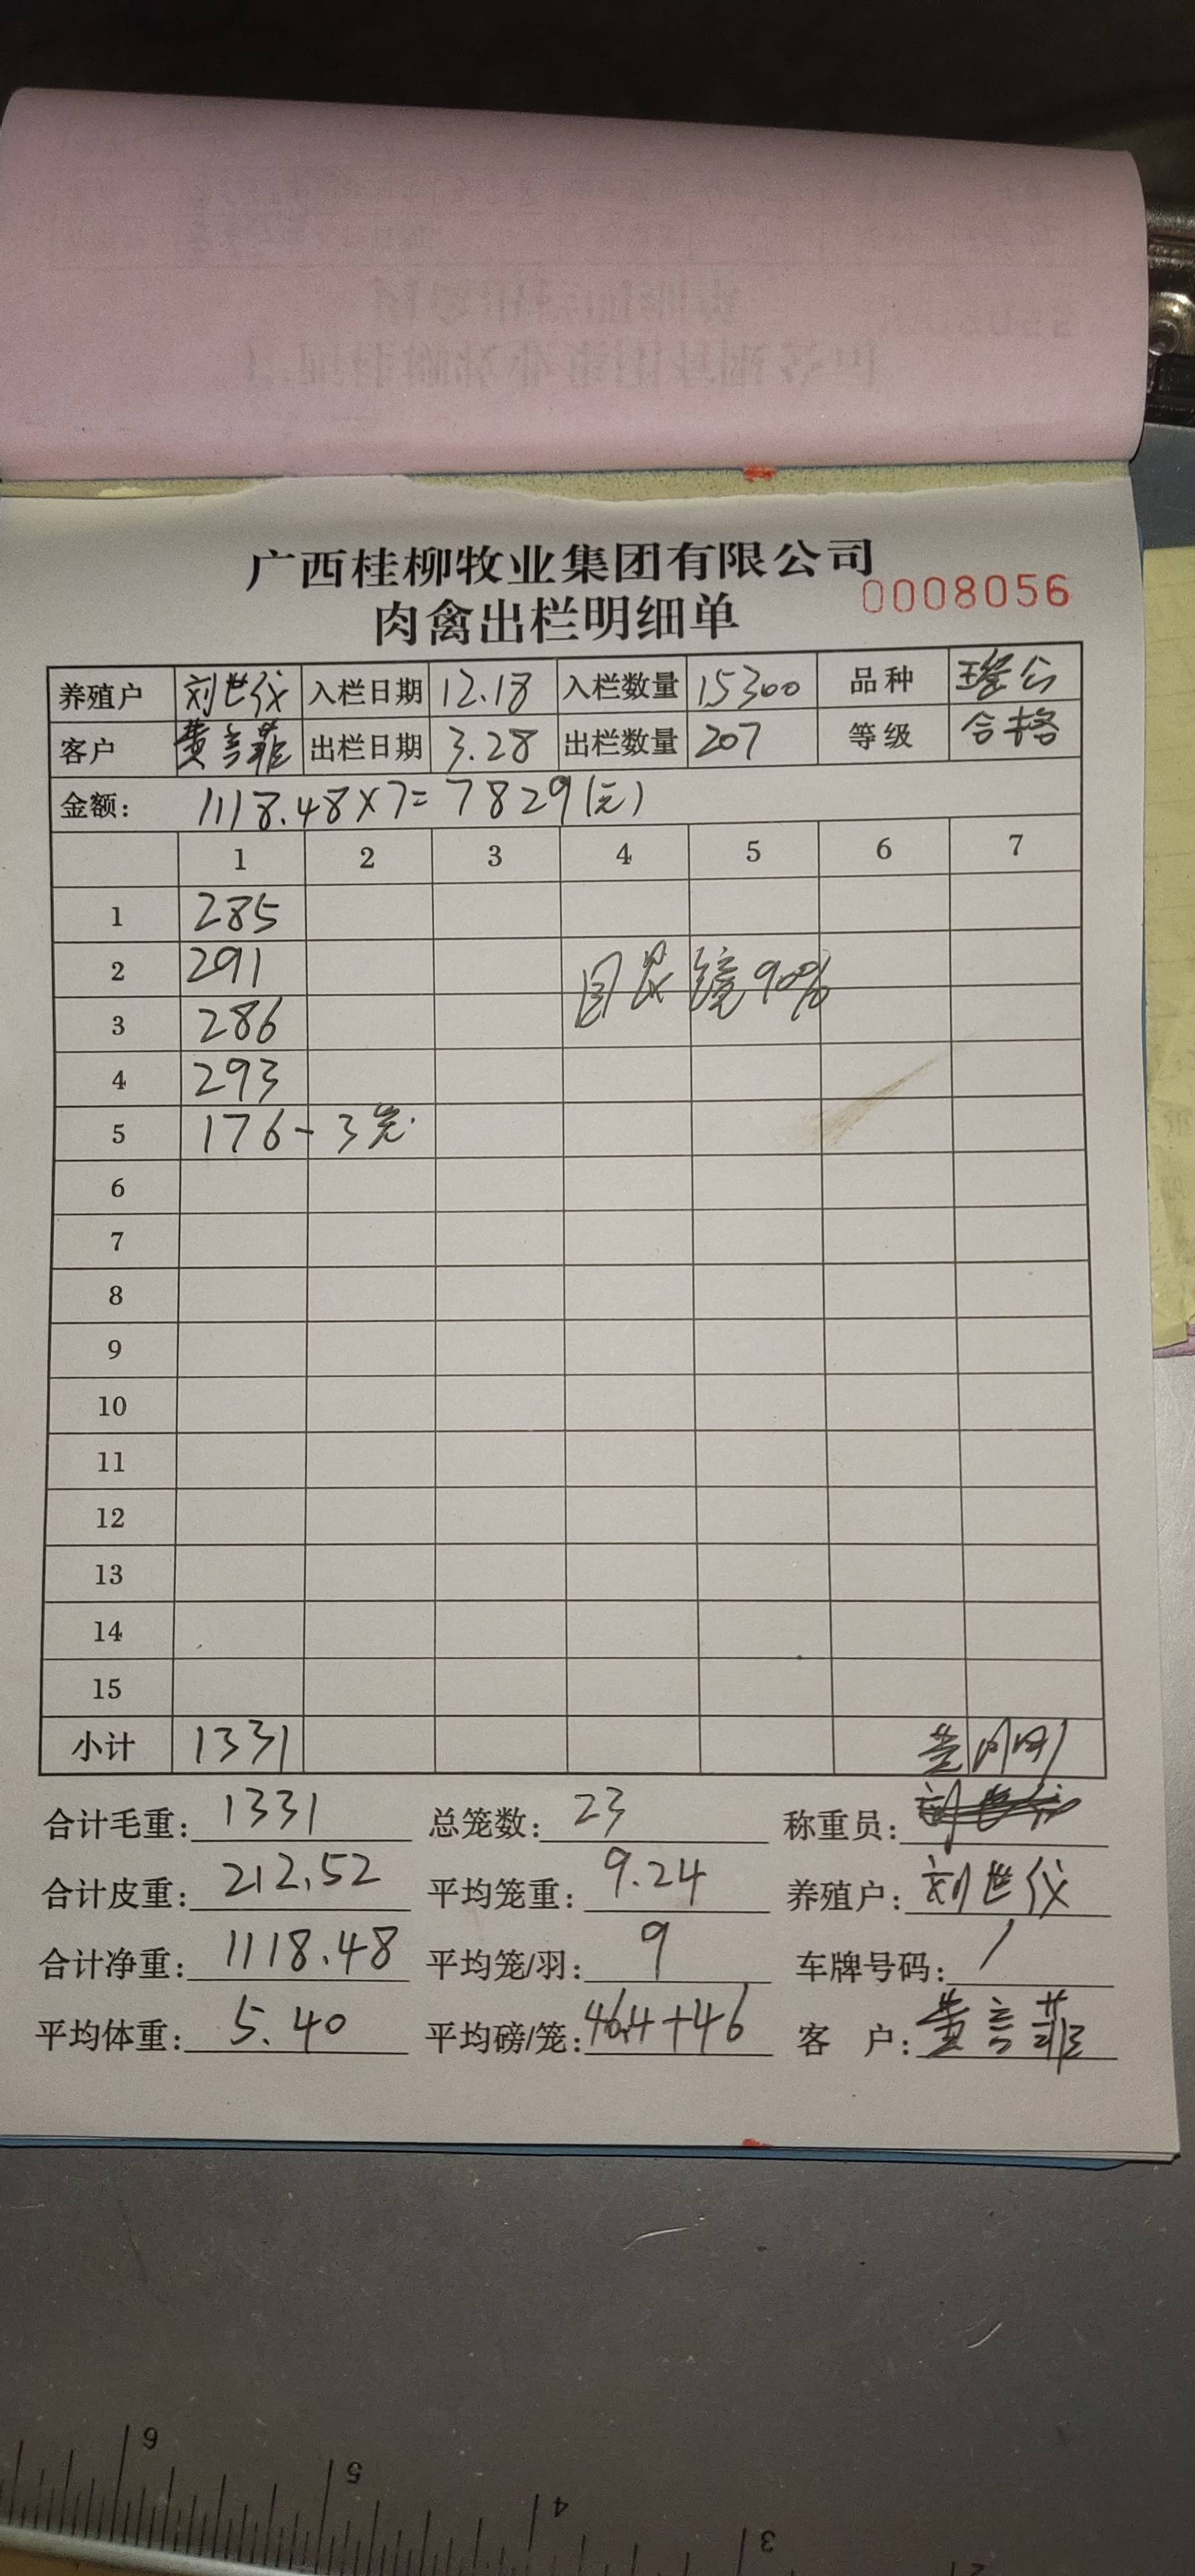 广西桂柳牧业集团有限公司
肉禽出栏明细单
0008056
养殖户 刘世仪 入栏日期 12.18 入栏数量 15300 品种 瑶公
客户 黄言菲 出栏日期 3.28 出栏数量 207 等级 合格
金额: 1118.48×7=7829(元)
1 2 3 4 5 6 7
1 285
2 291
3 286 镜90%
4 293
5 176-3笼.
6
7
8
9
10
11
12
13
14
15
小计 1331
合计毛重: 1331 总笼数: 23 称重员:
合计皮重: 212.52 平均笼重: 9.24 养殖户: 刘世仪
合计净重: 1118.48 平均笼/羽: 9 车牌号码: /
平均体重: 5.40 平均磅/笼: 46.4+46 客 户: 黄言菲
6 5 4 3 2